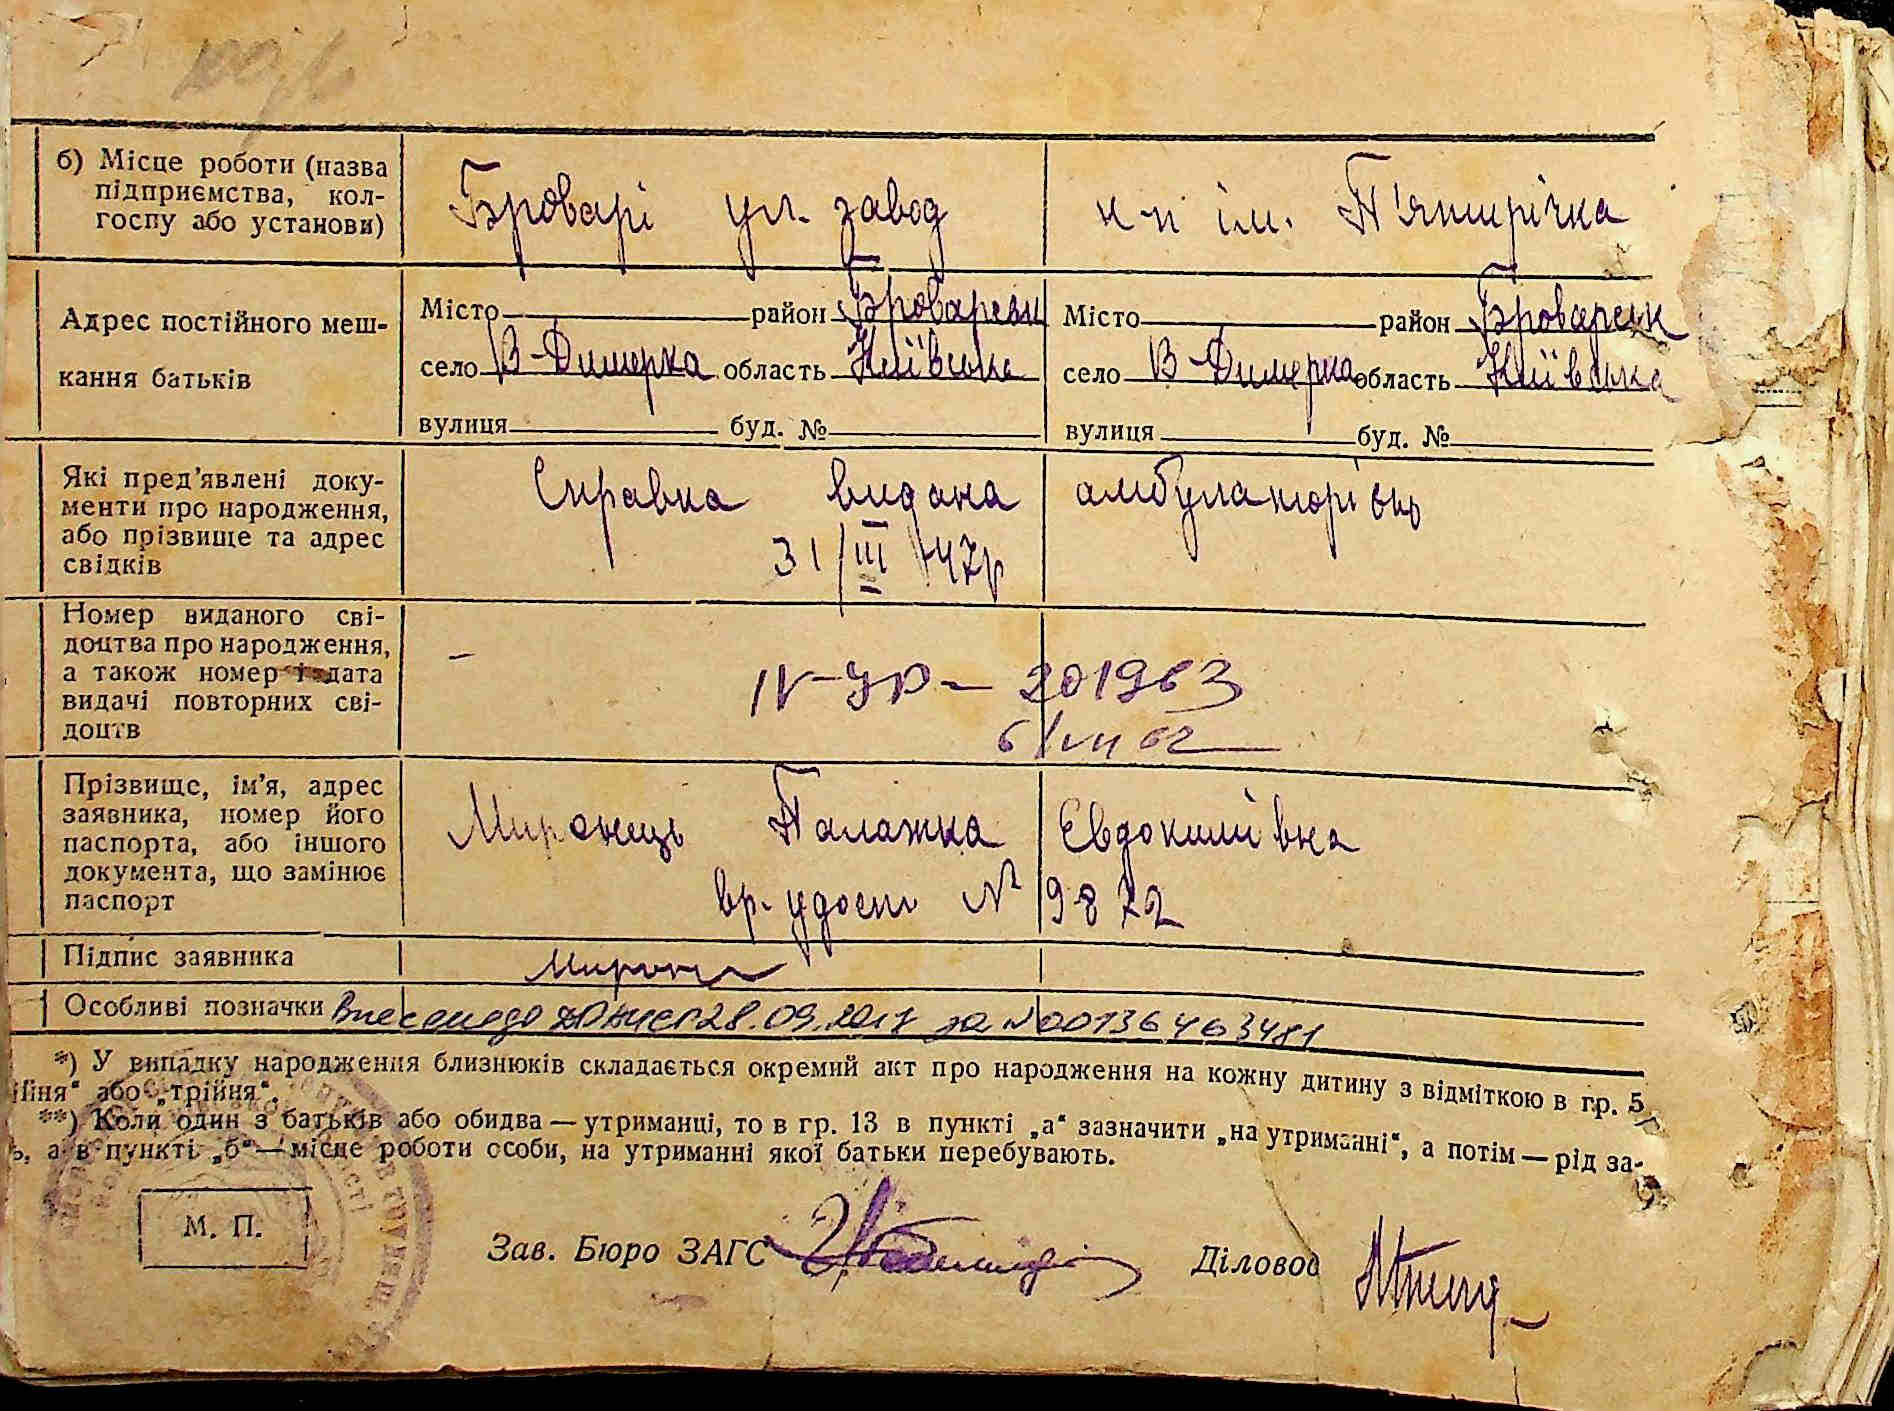 б) Місце роботи (назва
підприємства, кол-
госпу або установи)
Броварі ул. завод
к-п ім. П'ятирічка
Адрес постійного меш-
кання батьків
Місто район Броварськ
село В-Димерка область Київська
вулиця буд. №
Місто район Броварськ
село В-Димерка область Київська
вулиця буд. №
Які пред'явлені доку-
менти про народження,
або прізвище та адрес
свідків
Справка видана амбулаторією
31/III 47р
Номер виданого сві-
доцтва про народження,
а також номер і дата
видачі повторних сві-
доцтв
– IV-УР- 201963
6/VII 62
Прізвище, ім'я, адрес
заявника, номер його
паспорта, або іншого
документа, що замінює
паспорт
Миронець Палажка Євдокимівна
вр. удост № 9872
Підпис заявника
Особливі позначки Внесено до ДРАЦС 28.09.2017 за №00136463481
*) У випадку народження близнюків складається окремий акт про народження на кожну дитину з відміткою в гр. 5
ійня" або „трійня".
**) Коли один з батьків або обидва — утриманці, то в гр. 13 в пункті „а" зазначити „на утриманні", а потім — рід за-
ь, а в пункті „б" — місце роботи особи, на утриманні якої батьки перебувають.
М. П.
Зав. Бюро ЗАГС
Діловод